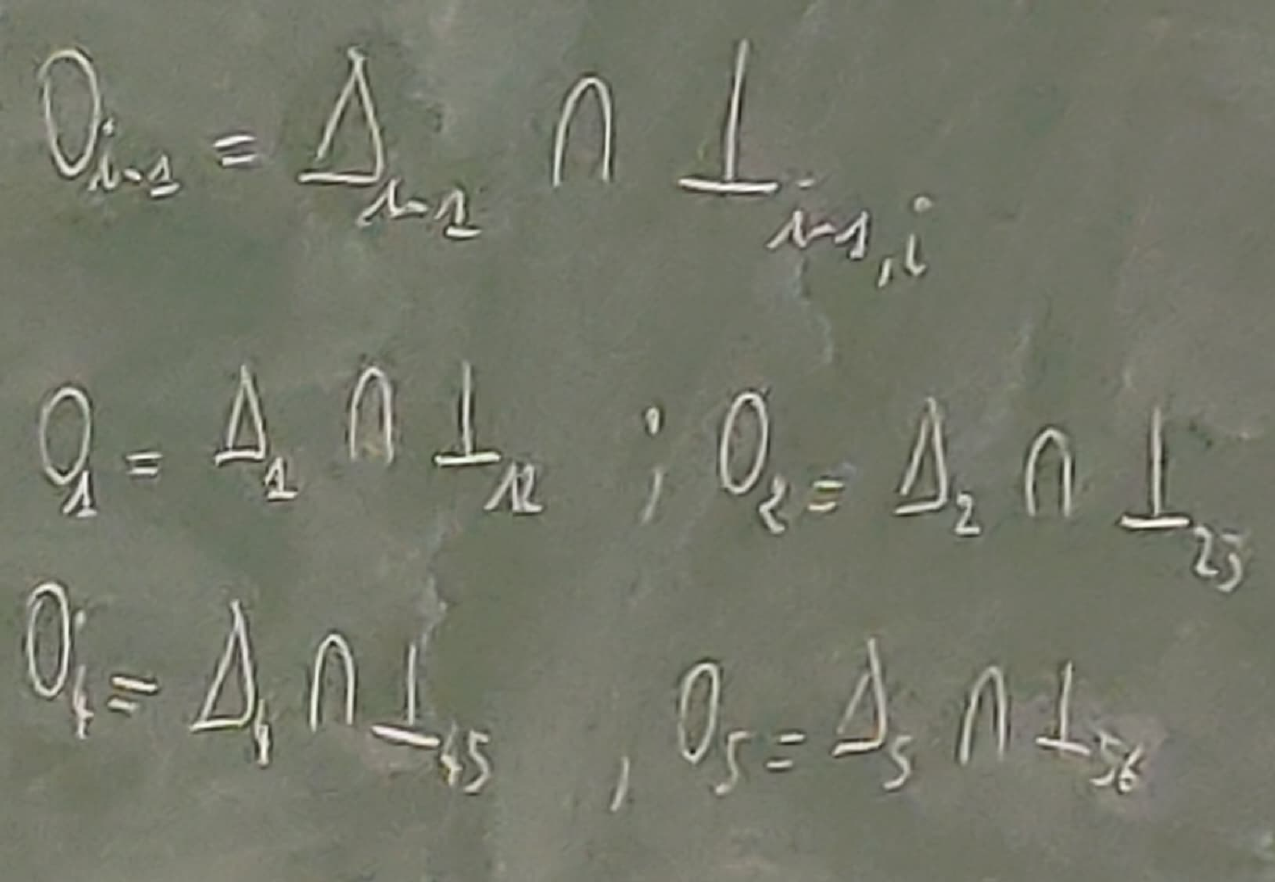 O_{i-1} = Δ_{i-1} ∩ ⊥_{i-1,i}
O_1 = Δ_1 ∩ ⊥_{12} ; O_2 = Δ_2 ∩ ⊥_{23}
O_4 = Δ_4 ∩ ⊥_{45} , O_5 = Δ_5 ∩ ⊥_{56}